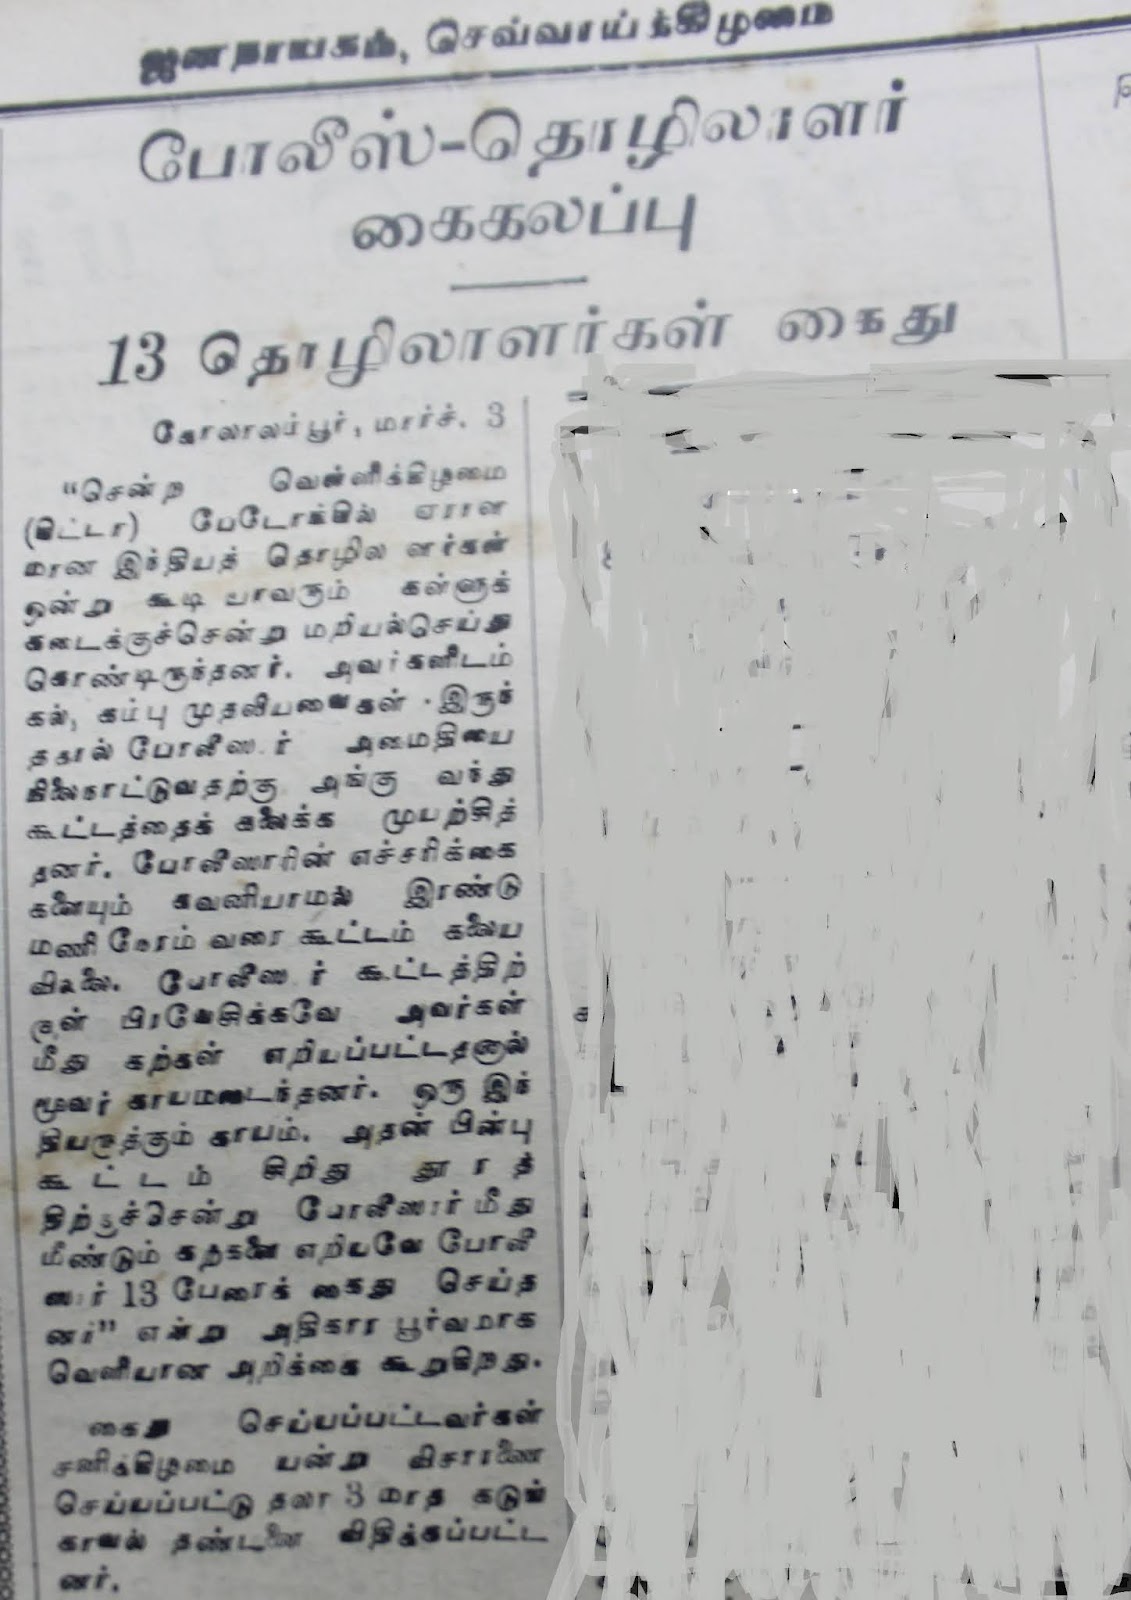 ஜனநாயகம், செவ்வாய்க்கிழமை
போலீஸ்-தொழிலாளர்
கைகலப்பு
13 தொழிலாளர்கள் கைது
கோலாலம்பூர், மார்ச். 3
“சென்ற வெள்ளிக்கிழமை
பேடோங்கில் ஏராள
மான இந்தியத் தொழிலாளர்கள்
ஒன்று கூடி யாவரும் கள்ளுக்
கடைக்குச்சென்று மறியல்செய்து
கொண்டிருந்தனர். அவர்களிடம்
கல், கம்பு முதலியவைகள் இருந்
ததால் போலீஸார் அமைதியை
நிலைநாட்டுவதற்கு அங்கு வந்து
கூட்டத்தைக் கலைக்க முயற்சித்
தனர். போலீஸாரின் எச்சரிக்கை
களையும் கவனியாமல் இரண்டு
மணி நேரம் வரை கூட்டம் கலைய
வில்லை. போலீஸார் கூட்டத்திற்
குள் பிரவேசிக்கவே அவர்கள்
மீது கற்கள் எறியப்பட்டதனால்
மூவர் காயமடைந்தனர். ஒரு இந்
தியருக்கும் காயம். அதன் பின்பு
கூட்டம் சிறிது தூரத்
திற்குச்சென்று போலீஸார் மீது
மீண்டும் கற்களை எறியவே போலீ
ஸார் 13 பேரைக் கைது செய்த
னர்” என்று அதிகார பூர்வமாக
வெளியான அறிக்கை கூறுகிறது.
கைது செய்யப்பட்டவர்கள்
சனிக்கிழமை யன்று விசாரணை
செய்யப்பட்டு தலா 3 மாத கடுங்
காவல் தண்டனை விதிக்கப்பட்ட
னர்.